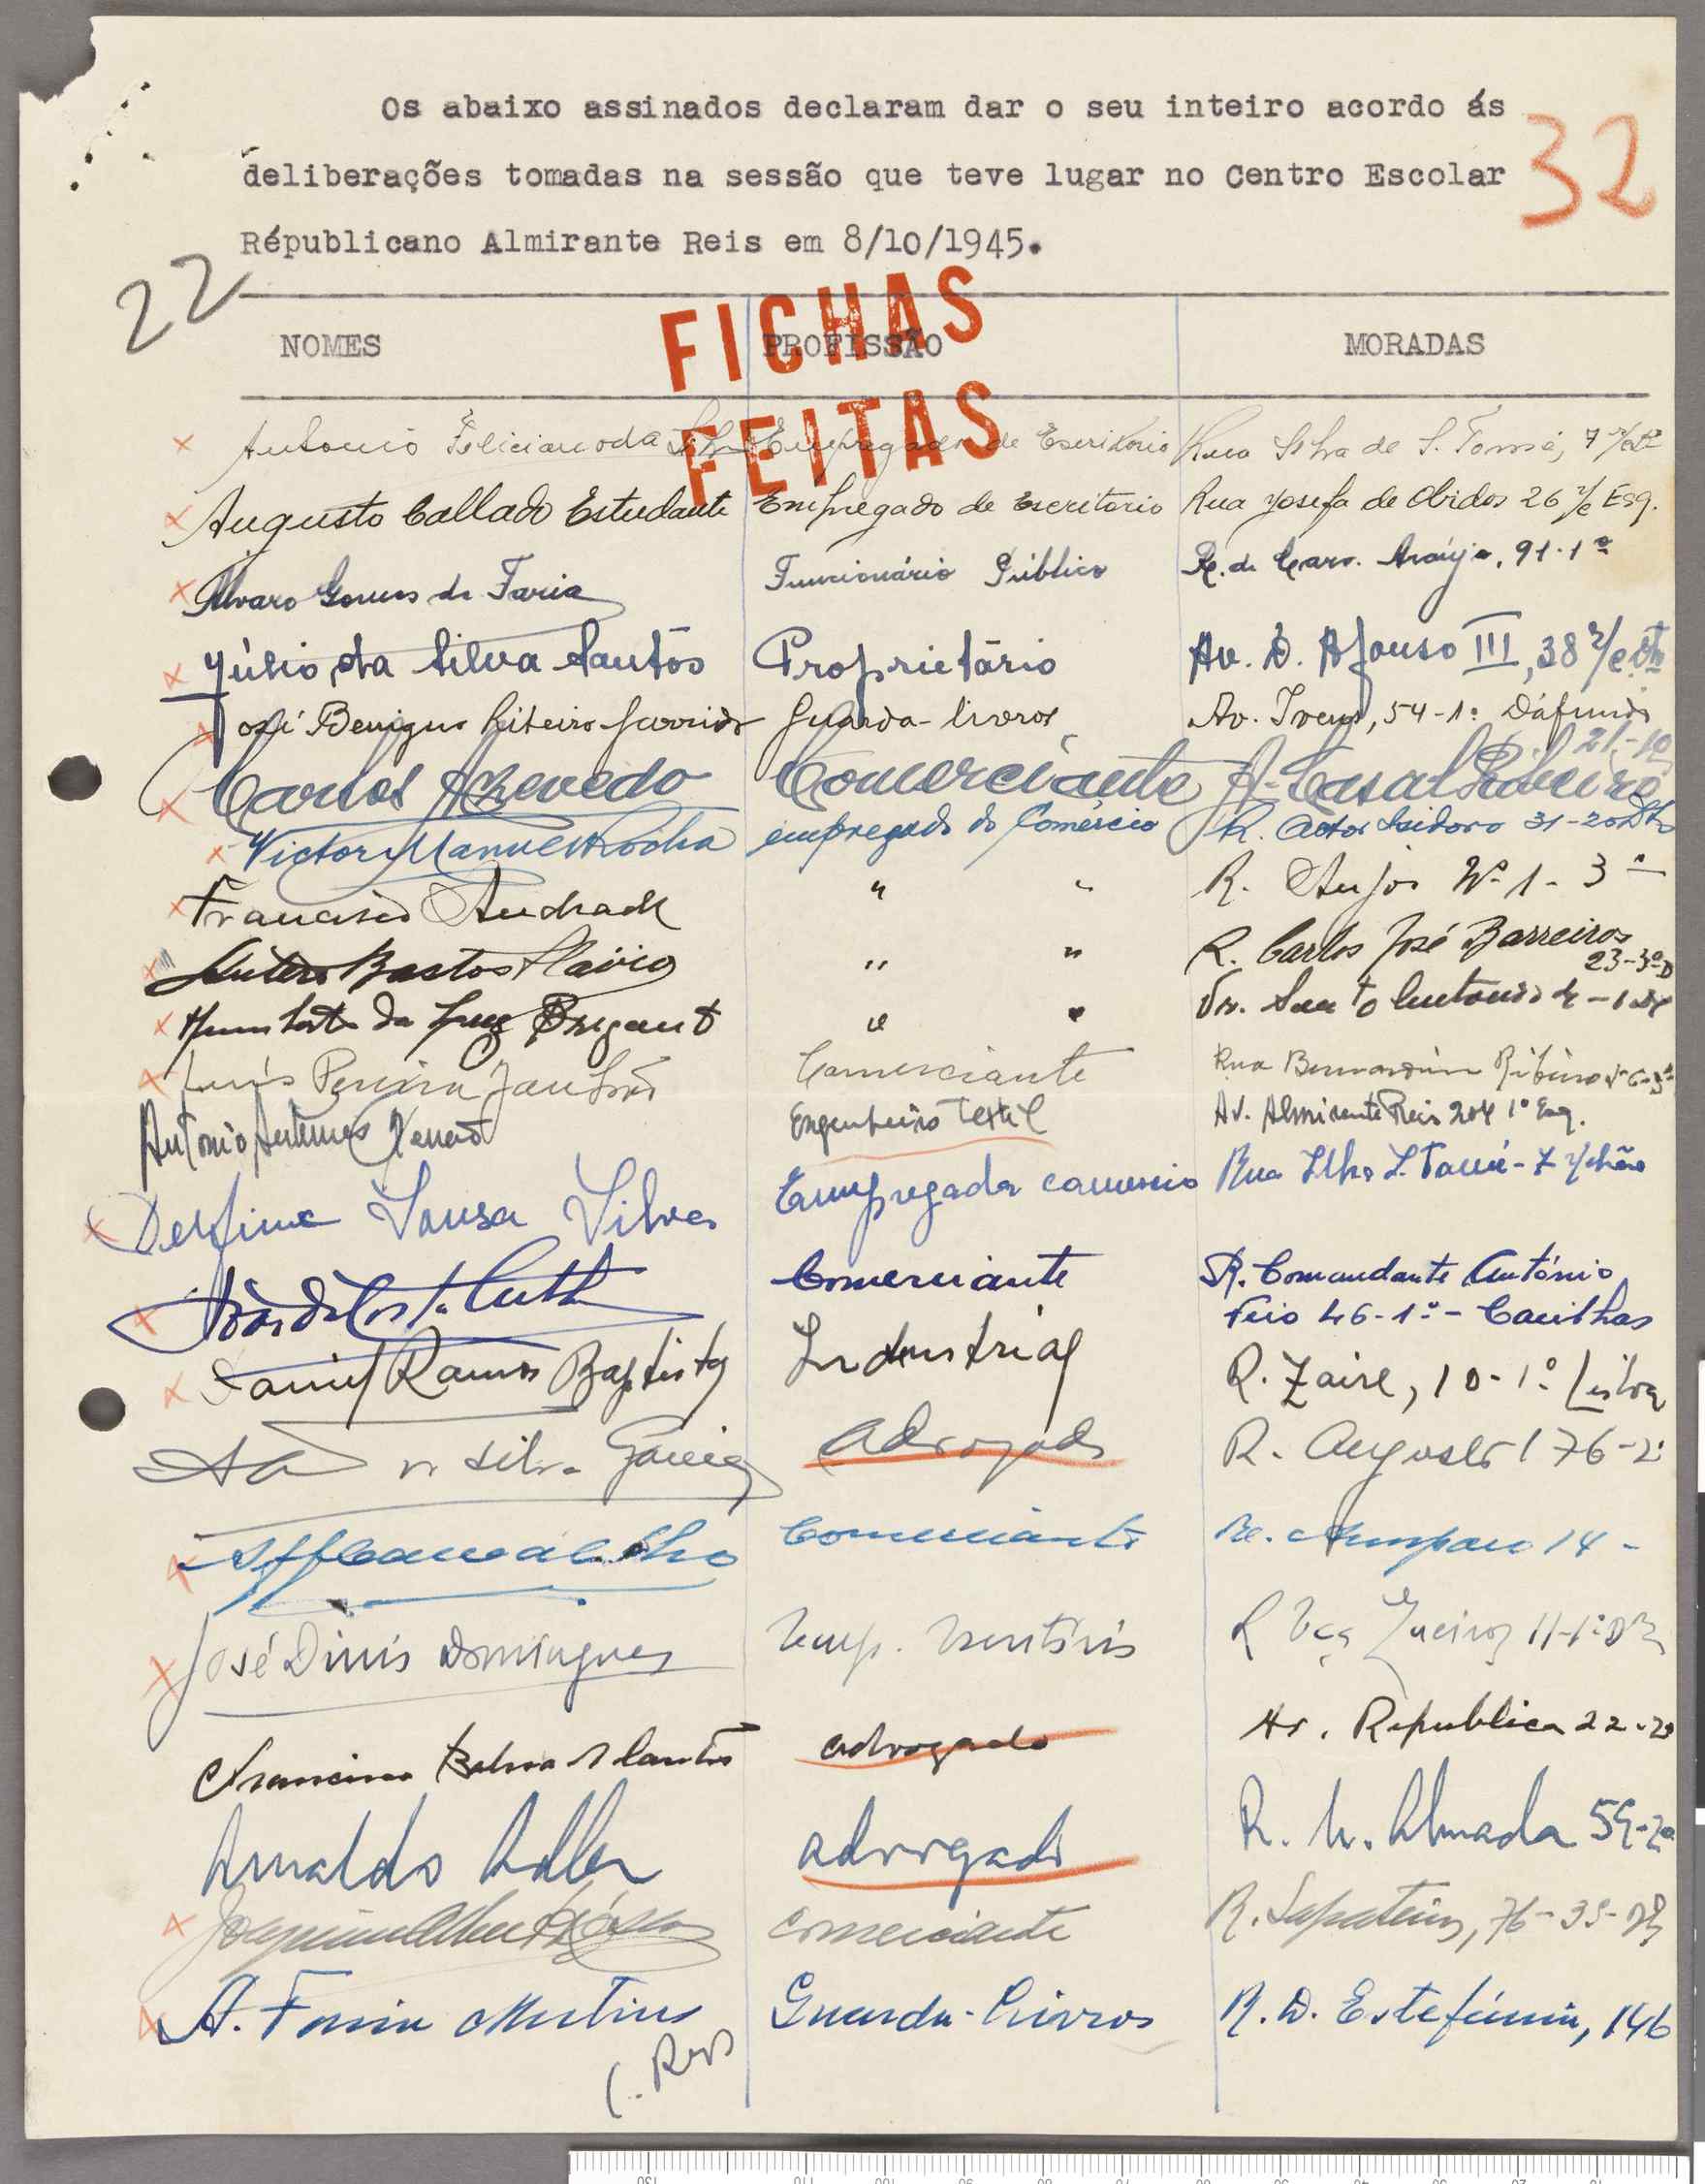 Os abaixo assinados declaram dar o seu inteiro acordo ás
deliberações tomadas na sessão que teve lugar no Centro Escolar
Républicano Almirante Reis em 8/10/1945.
32
22
FICHAS
FEITAS
NOMES PROFISSÃO MORADAS
Antonio Feliciano da Silva Empregado de Escritorio Rua Ilha de S. Tomé, 7
Augusto Callado Estudante Empregado de Escritorio Rua Josefa de Obidos 26 r/c Esq.
Alvaro Gomes de Faria Funcionário Público R. de Carv. Araújo, 91-1º
Júlio da Silva Santos Proprietário Av. D. Afonso III, 38 r/c Dto
José Benigno Ribeiro Garrido Guarda-livros Av. Ivens, 54-1º Dáfundo
Carlos Azevedo Comerciante R. Casal Ribeiro
Victor Manuel Rocha empregado do Comércio R. Actor Isidoro 31-2º Dto
Francisco Andrade " " R. Anjos Nº 1-3º
Antero Bastos Flávio " " R. Carlos José Barreiros
23-3º D
da Luz " " Santo Antonio
Luís Pereira Comerciante Rua Bernardim Ribeiro
Antonio Antunes Engenheiro Textil Av. Almirante Reis 204 1º Esq.
Delfina Sousa Silva Empregada comercio Rua Ilha S. Tomé - 7 r/chão
João da Costa Comerciante R. Comandante António
Feio 46-1º - Cacilhas
Daniel Ramos Baptista Industrial R. Zaire, 10-1º Lisboa
da Silva Garcia Advogado R. Augusta 176-2º
Carvalho Comerciante R. Amparo 14 -
José Dinis Domingues Emp. Escritório R Vaz Queiroz 11-1º
Francisco Advogado Av. Republica 22-2º
Arnaldo Advogado R. Almada 59-2º
Joaquim Comerciante R. Sapateiros, 76-3º
A. Faria Martins Guarda-Livros R. D. Estefânia, 146